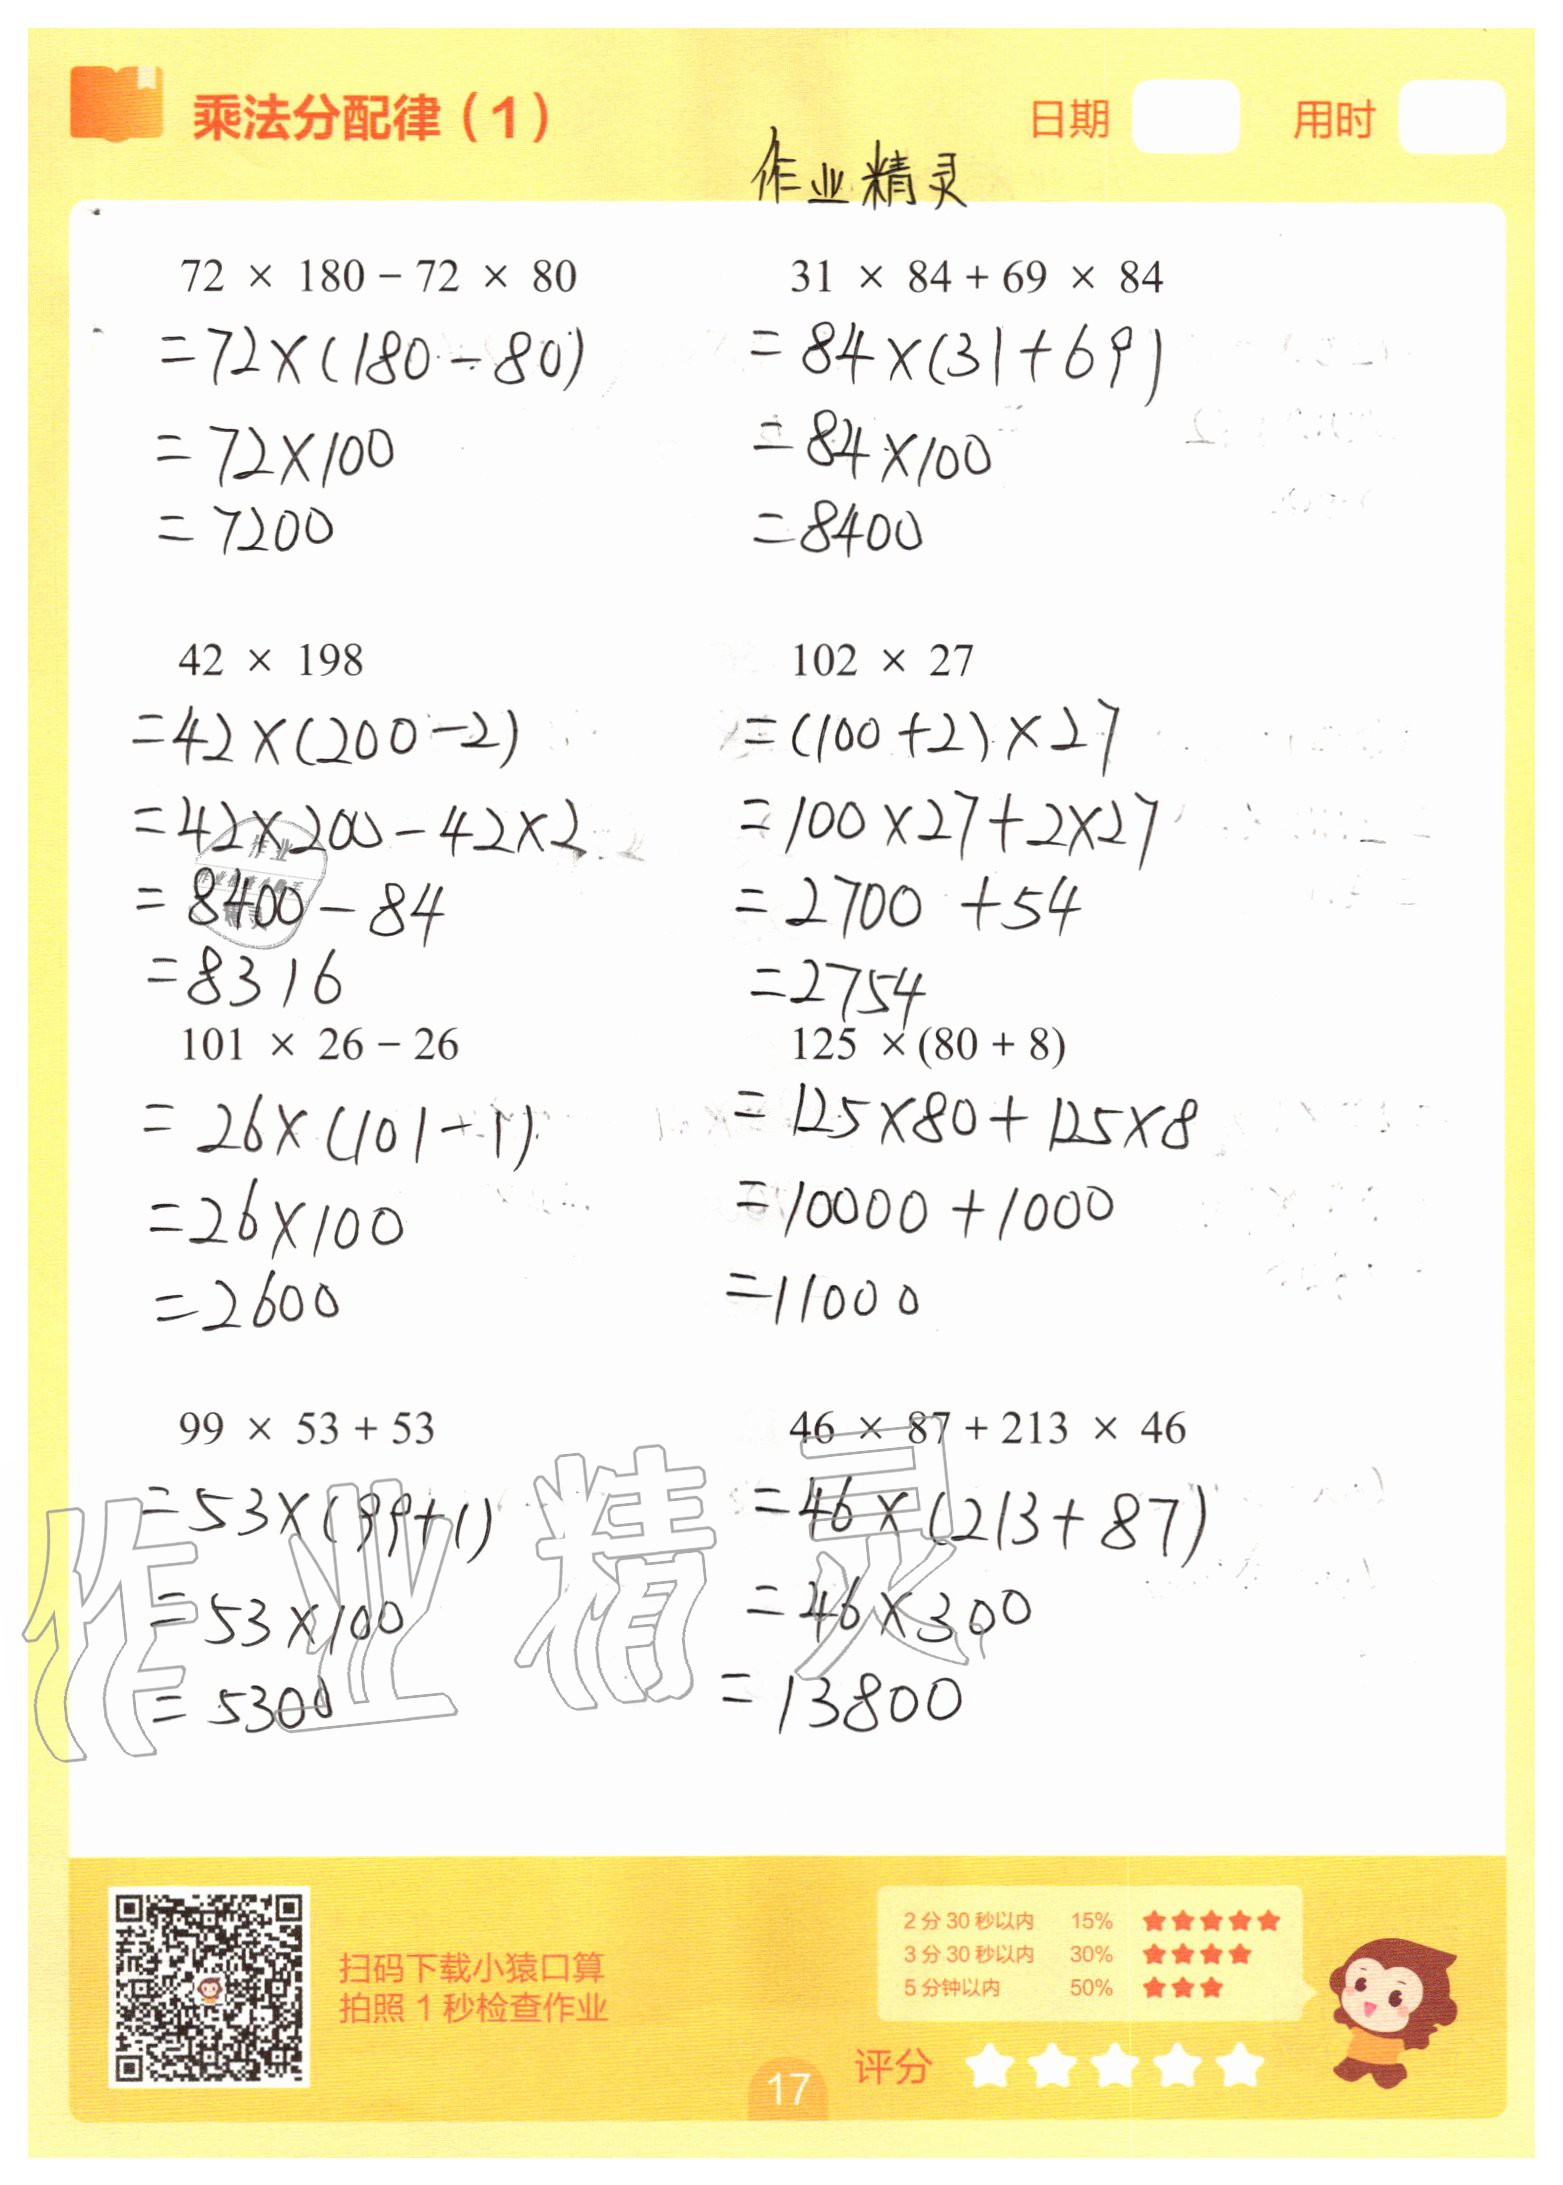 乘法分配律（1）
日期
用时
作业精灵
72 × 180 − 72 × 80
=72×(180−80)
=72×100
=7200
31 × 84 + 69 × 84
=84×(31+69)
=84×100
=8400
42 × 198
=42×(200−2)
=42×200−42×2
=8400−84
=8316
102 × 27
=(100+2)×27
=100×27+2×27
=2700+54
=2754
101 × 26 − 26
=26×(101−1)
=26×100
=2600
125 ×(80 + 8)
=125×80+125×8
=10000+1000
=11000
99 × 53 + 53
=53×(99+1)
=53×100
=5300
46 × 87 + 213 × 46
=46×(213+87)
=46×300
=13800
作业精灵
扫码下载小猿口算
拍照 1 秒检查作业
2 分 30 秒以内 15% ★★★★★
3 分 30 秒以内 30% ★★★★
5 分钟以内 50% ★★★
评分
17